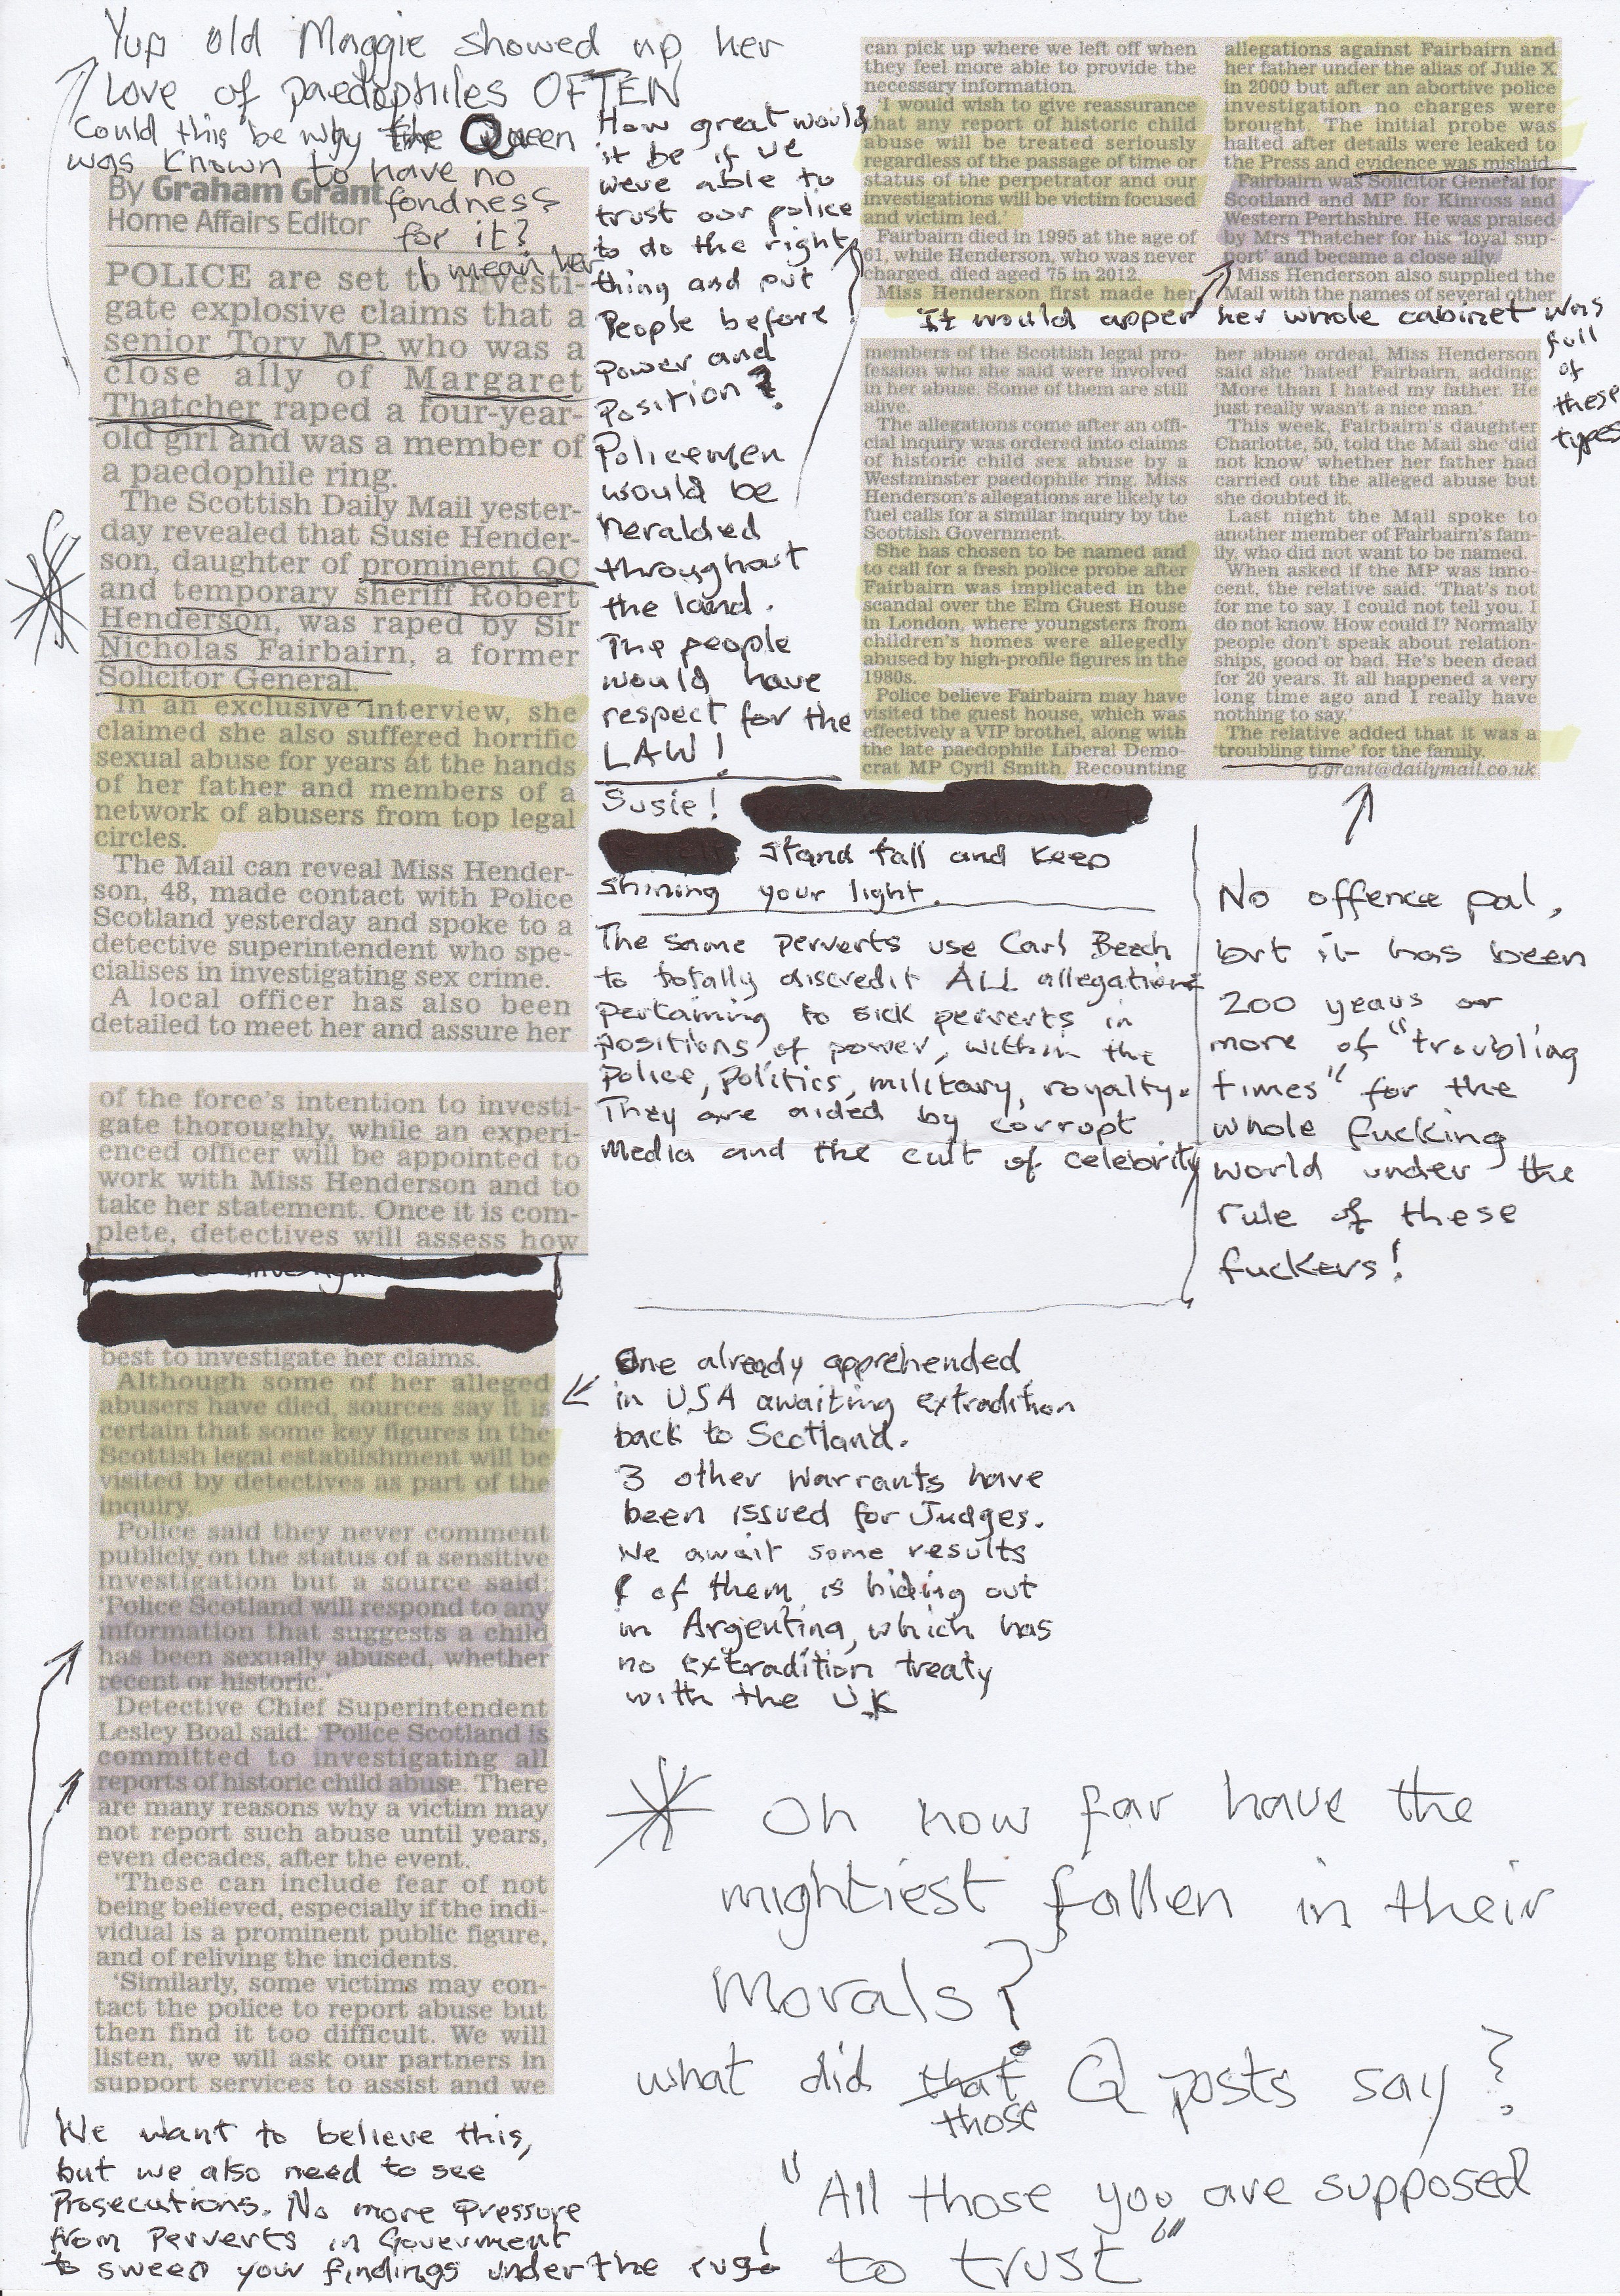 Yup old Maggie showed up her
Love of paedophiles OFTEN
Could this be why the Queen
was known to have no
fondness
for it?
I mean her
By Graham Grant
Home Affairs Editor
POLICE are set to investi-
gate explosive claims that a
senior Tory MP, who was a
close ally of Margaret
Thatcher raped a four-year-
old girl and was a member of
a paedophile ring.
The Scottish Daily Mail yester-
day revealed that Susie Hender-
son, daughter of prominent QC
and temporary sheriff Robert
Henderson, was raped by Sir
Nicholas Fairbairn, a former
Solicitor General.
In an exclusive interview, she
claimed she also suffered horrific
sexual abuse for years at the hands
of her father and members of a
network of abusers from top legal
circles.
The Mail can reveal Miss Hender-
son, 48, made contact with Police
Scotland yesterday and spoke to a
detective superintendent who spe-
cialises in investigating sex crime.
A local officer has also been
detailed to meet her and assure her
of the force's intention to investi-
gate thoroughly, while an experi-
enced officer will be appointed to
work with Miss Henderson and to
take her statement. Once it is com-
plete, detectives will assess how
best to investigate her claims.
Although some of her alleged
abusers have died, sources say it is
certain that some key figures in the
Scottish legal establishment will be
visited by detectives as part of the
inquiry.
Police said they never comment
publicly on the status of a sensitive
investigation but a source said:
'Police Scotland will respond to any
information that suggests a child
has been sexually abused, whether
recent or historic.'
Detective Chief Superintendent
Lesley Boal said: 'Police Scotland is
committed to investigating all
reports of historic child abuse. There
are many reasons why a victim may
not report such abuse until years,
even decades, after the event.
'These can include fear of not
being believed, especially if the indi-
vidual is a prominent public figure,
and of reliving the incidents.
'Similarly, some victims may con-
tact the police to report abuse but
then find it too difficult. We will
listen, we will ask our partners in
support services to assist and we
We want to believe this,
but we also need to see
Prosecutions. No more pressure
from Perverts in Goverment
to sweep your findings under the rug!
How great would
it be if we
were able to
trust our police
to do the right
thing and put
People before
power and
Position?
Policemen
would be
heralded
throughout
the land.
The people
would have
respect for the
LAW!
Susie!
stand tall and keep
shining your light.
The same perverts use Carl Beech
to totally discredit ALL allegations
pertaining to sick perverts in
positions of power, within the
police, politics, military, royalty.
They are aided by corrupt
media and the cult of celebrity
One already apprehended
in USA awaiting extradition
back to Scotland.
3 other warrants have
been issued for Judges.
We await some results
1 of them is hiding out
in Argentina, which has
no extradition treaty
with the UK
can pick up where we left off when
they feel more able to provide the
necessary information.
'I would wish to give reassurance
that any report of historic child
abuse will be treated seriously
regardless of the passage of time or
status of the perpetrator and our
investigations will be victim focused
and victim led.'
Fairbairn died in 1995 at the age of
61, while Henderson, who was never
charged, died aged 75 in 2012.
Miss Henderson first made her
allegations against Fairbairn and
her father under the alias of Julie X
in 2000 but after an abortive police
investigation no charges were
brought. The initial probe was
halted after details were leaked to
the Press and evidence was mislaid.
Fairbairn was Solicitor General for
Scotland and MP for Kinross and
Western Perthshire. He was praised
by Mrs Thatcher for his 'loyal sup-
port' and became a close ally.
Miss Henderson also supplied the
Mail with the names of several other
It would apper her whole cabinet was
full
of
these
types
members of the Scottish legal pro-
fession who she said were involved
in her abuse. Some of them are still
alive.
The allegations come after an offi-
cial inquiry was ordered into claims
of historic child sex abuse by a
Westminster paedophile ring. Miss
Henderson's allegations are likely to
fuel calls for a similar inquiry by the
Scottish Government.
She has chosen to be named and
to call for a fresh police probe after
Fairbairn was implicated in the
scandal over the Elm Guest House
in London, where youngsters from
children's homes were allegedly
abused by high-profile figures in the
1980s.
Police believe Fairbairn may have
visited the guest house, which was
effectively a VIP brothel, along with
the late paedophile Liberal Demo-
crat MP Cyril Smith. Recounting
her abuse ordeal, Miss Henderson
said she 'hated' Fairbairn, adding:
'More than I hated my father. He
just really wasn't a nice man.'
This week, Fairbairn's daughter
Charlotte, 50, told the Mail she 'did
not know' whether her father had
carried out the alleged abuse but
she doubted it.
Last night the Mail spoke to
another member of Fairbairn's fam-
ily, who did not want to be named.
When asked if the MP was inno-
cent, the relative said: 'That's not
for me to say. I could not tell you. I
do not know. How could I? Normally
people don't speak about relation-
ships, good or bad. He's been dead
for 20 years. It all happened a very
long time ago and I really have
nothing to say.'
The relative added that it was a
'troubling time' for the family.
g.grant@dailymail.co.uk
No offence pal,
but it has been
200 years or
more of "troubling
times" for the
whole fucking
world under the
rule of these
fuckers!
Oh how far have the
mightiest fallen in their
Morals?
what did that Q posts say?
those
"All those you are supposed
to trust"